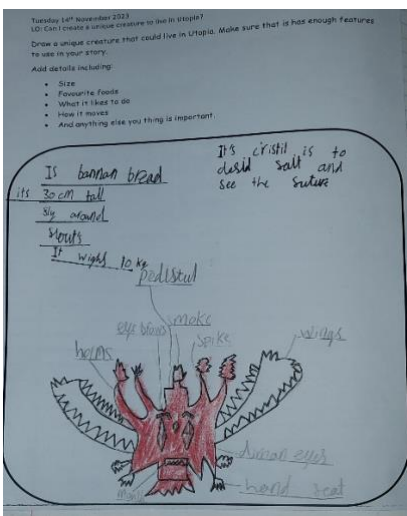 Tuesday 14th November 2023
LO: Can I create a unique creature to live in Utopia?
Draw a unique creature that could live in Utopia. Make sure that is has enough features
to use in your story.
Add details including:
• Size
• Favourite foods
• What it likes to do
• How it moves
• And anything else you thing is important
Is bannan bread
its 30 cm tall
fly around
It wighs 10 kg
It's cristil is to
salt and
see the
smoke
spike
wings
horns
eyes